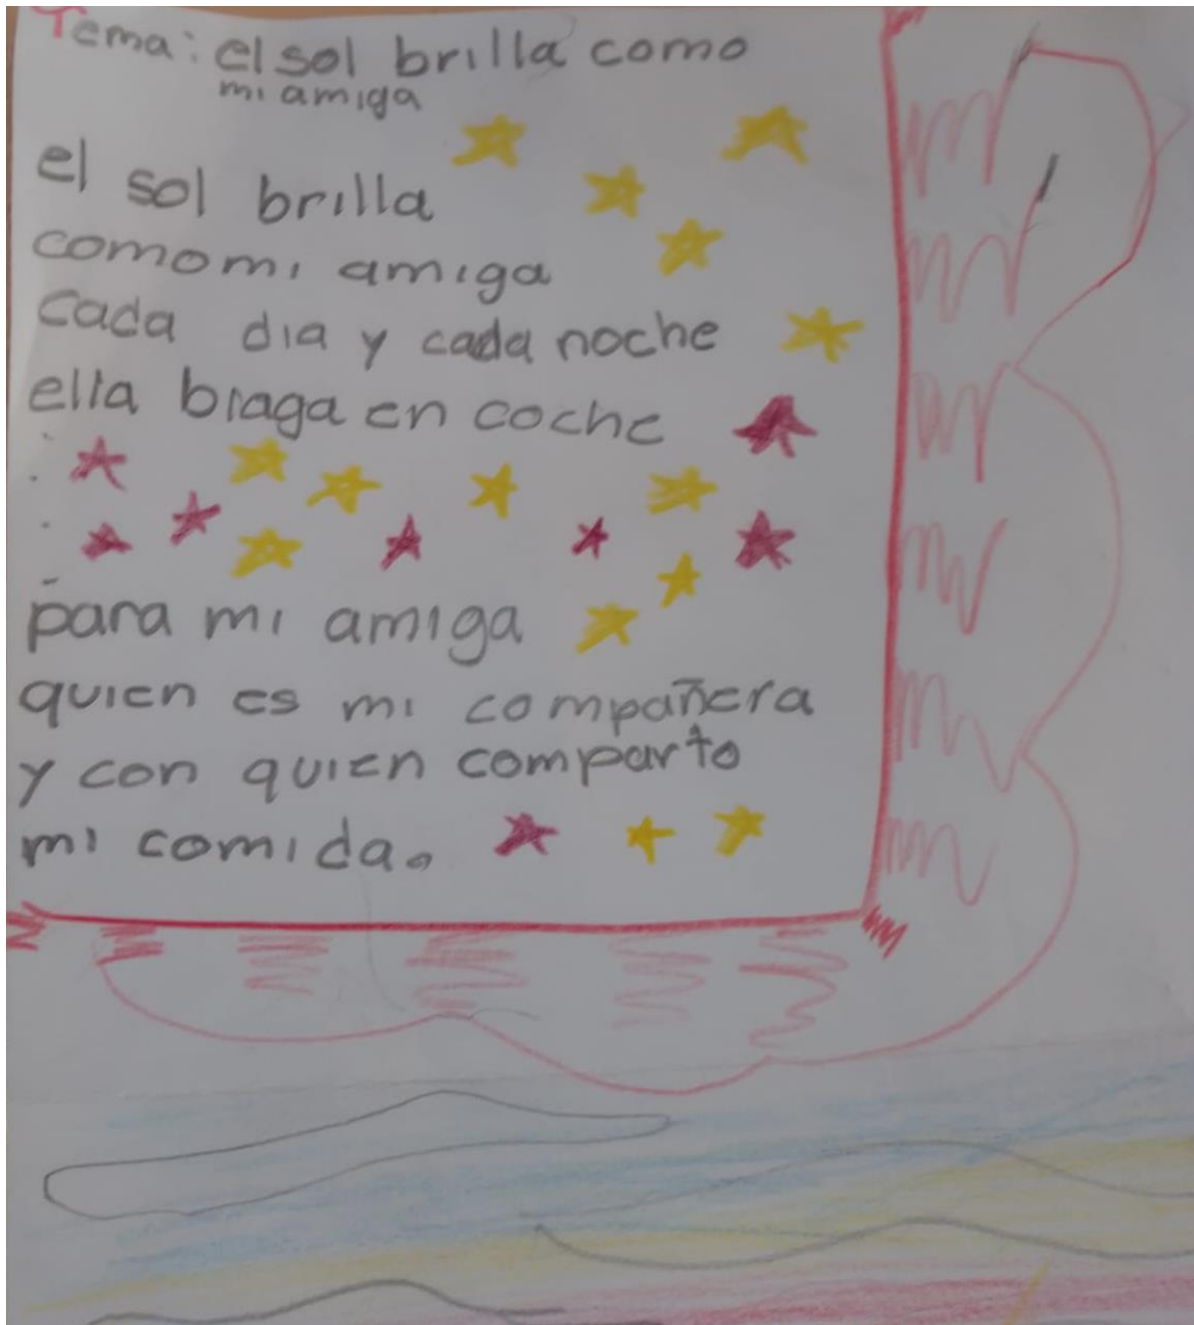 Tema: el sol brilla como
mi amiga
el sol brilla
como mi amiga
cada dia y cada noche
ella biaga en coche
para mi amiga
quien es mi compañera
y con quien comparto
mi comida.